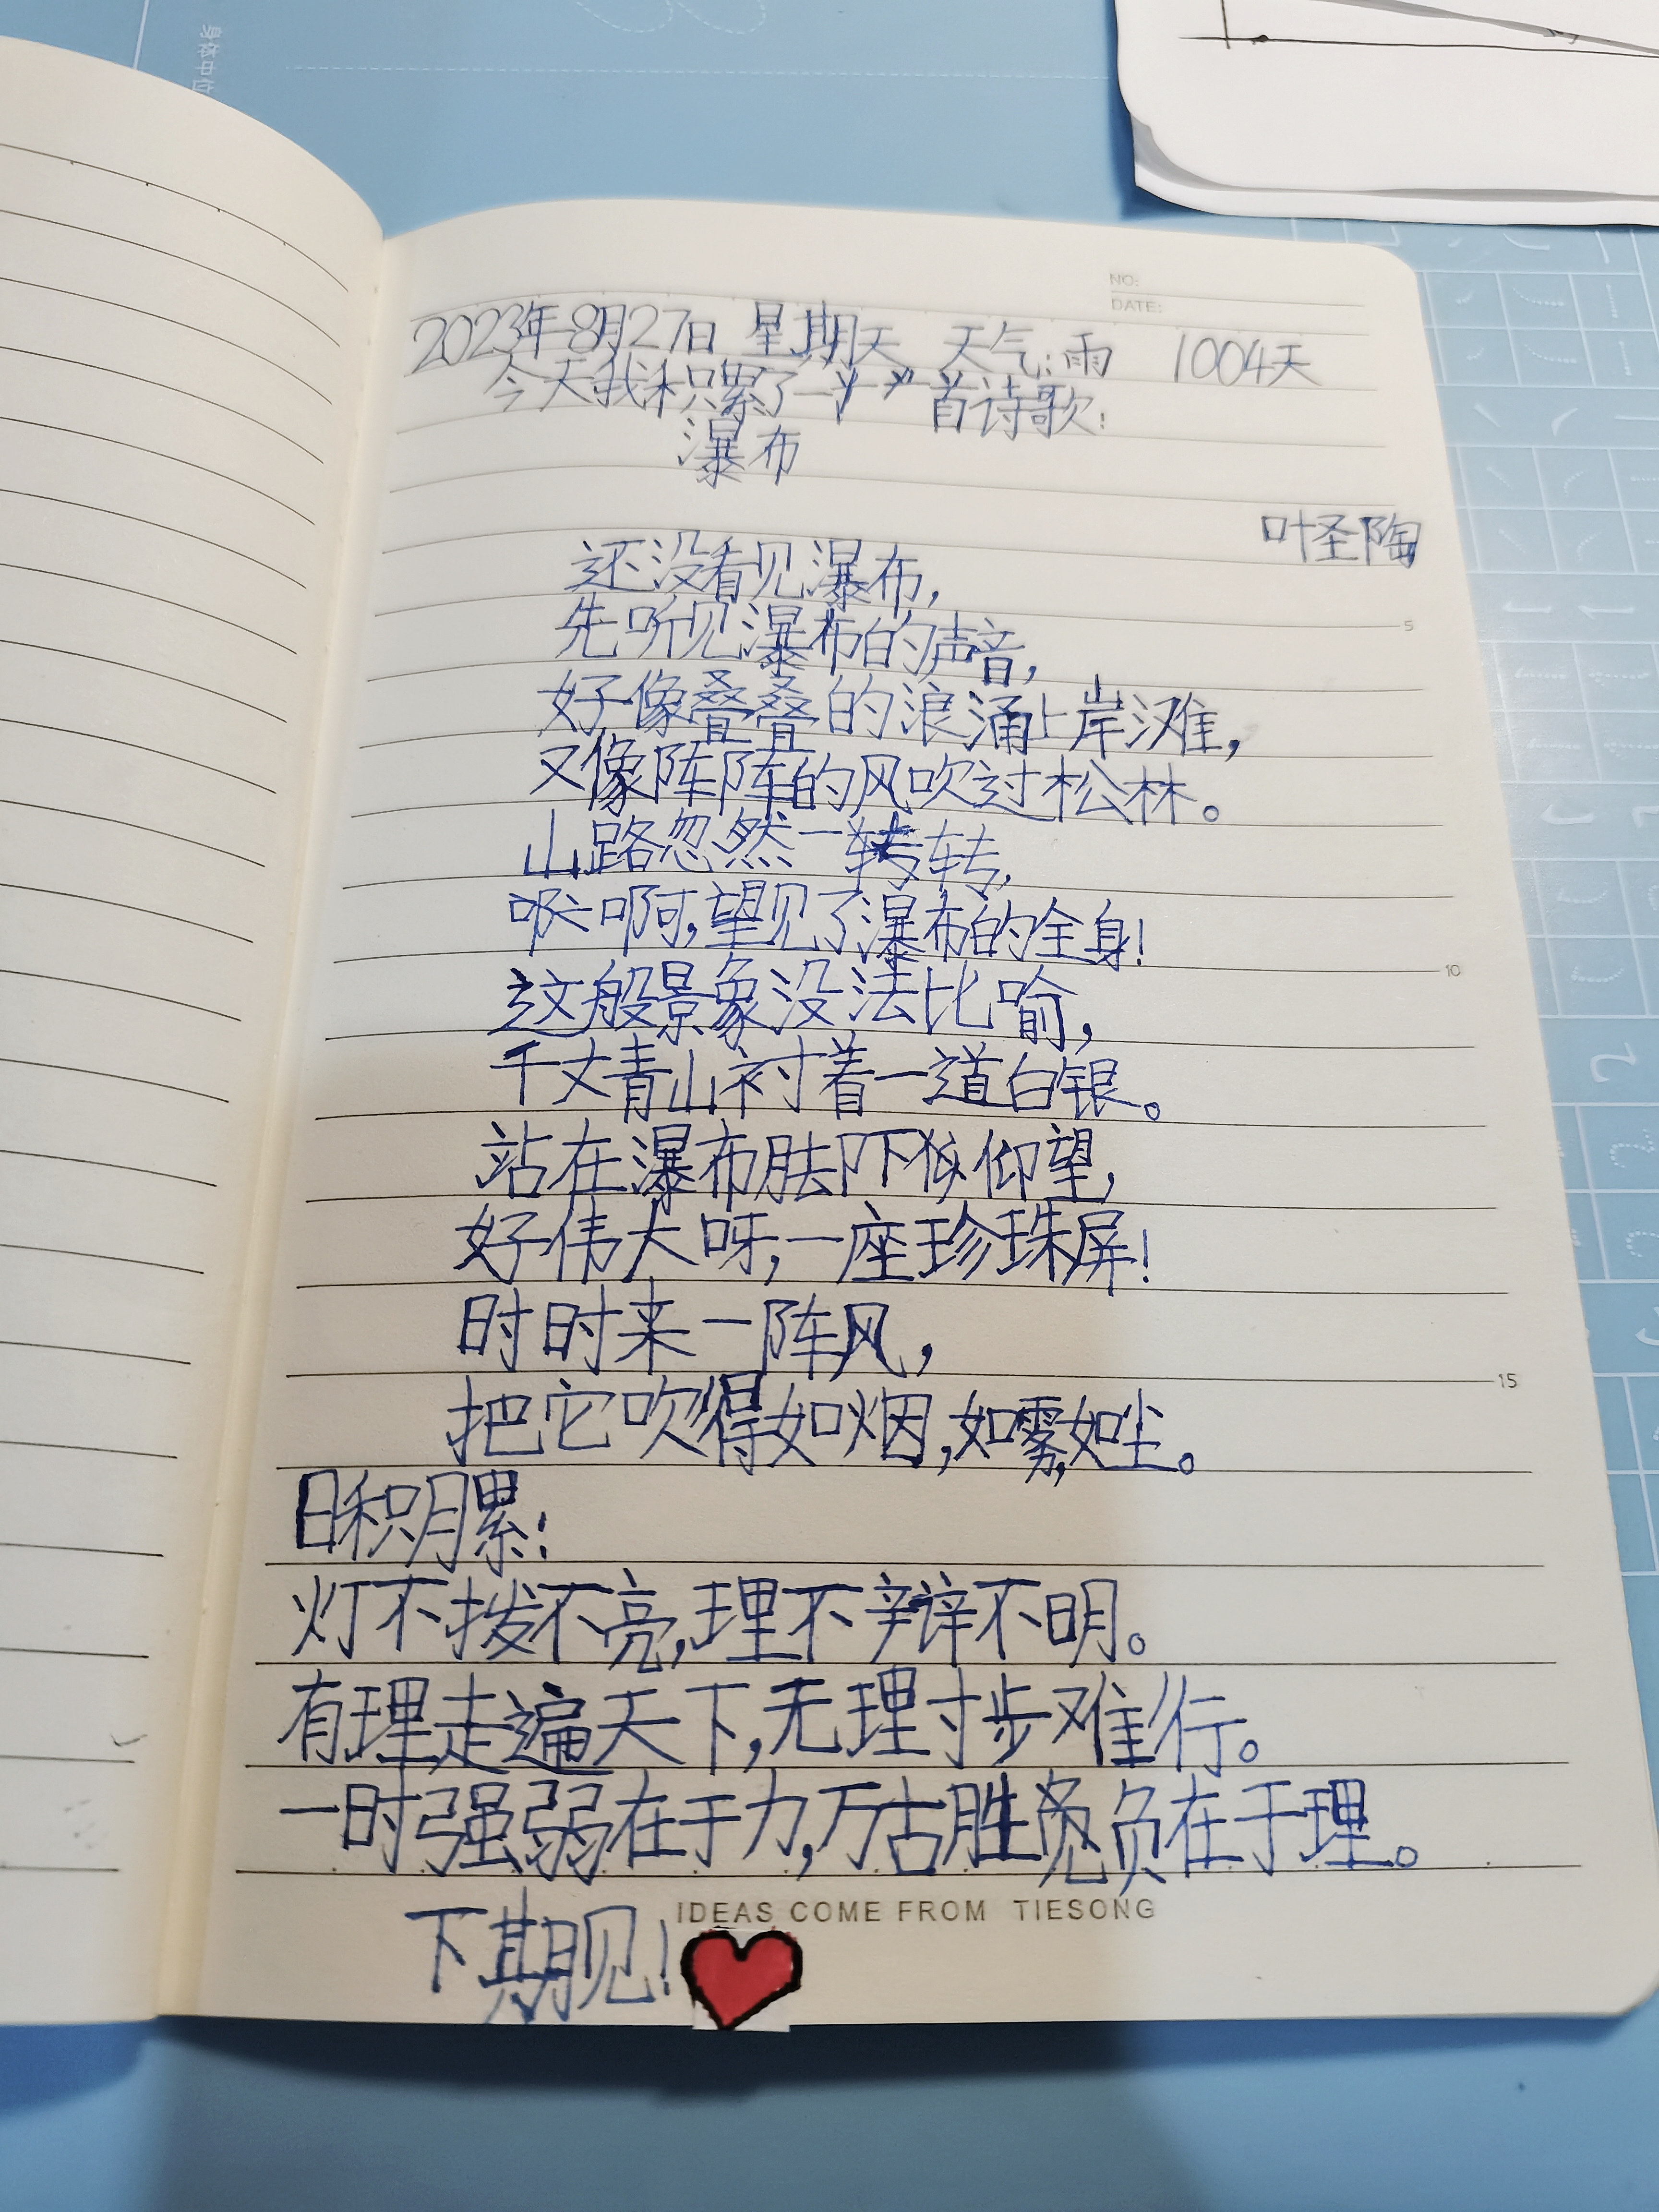 身体中位
NO:
DATE:
2023年8月27日 星期天 天气:雨 1004天
今天我积累了一首诗歌:
瀑布
叶圣陶
还没看见瀑布,
先听见瀑布的声音,
5
好像叠叠的浪涌上岸滩,
又像阵阵的风吹过松林。
山路忽然一转,
啊,望见了瀑布的全身!
10
这般景象没法比喻,
千丈青山衬着一道白银。
站在瀑布脚下仰望,
好伟大呀,一座珍珠屏!
时时来一阵风,
15
把它吹得如烟,如雾,如尘。
日积月累:
灯不拨不亮,理不辩不明。
有理走遍天下,无理寸步难行。
一时强弱在于力,万古胜负在于理。
IDEAS COME FROM TIESONG
下期见!